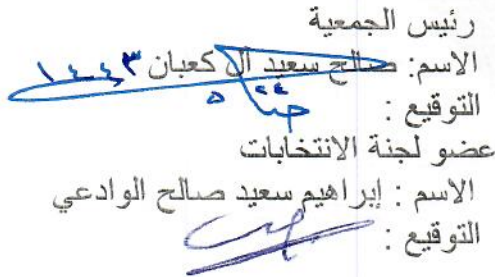 رئيس الجمعية
الاسم: صالح سعيد آل كعبان
١٤٤٣
التوقيع :
عضو لجنة الانتخابات
الاسم : إبراهيم سعيد صالح الوادعي
التوقيع :